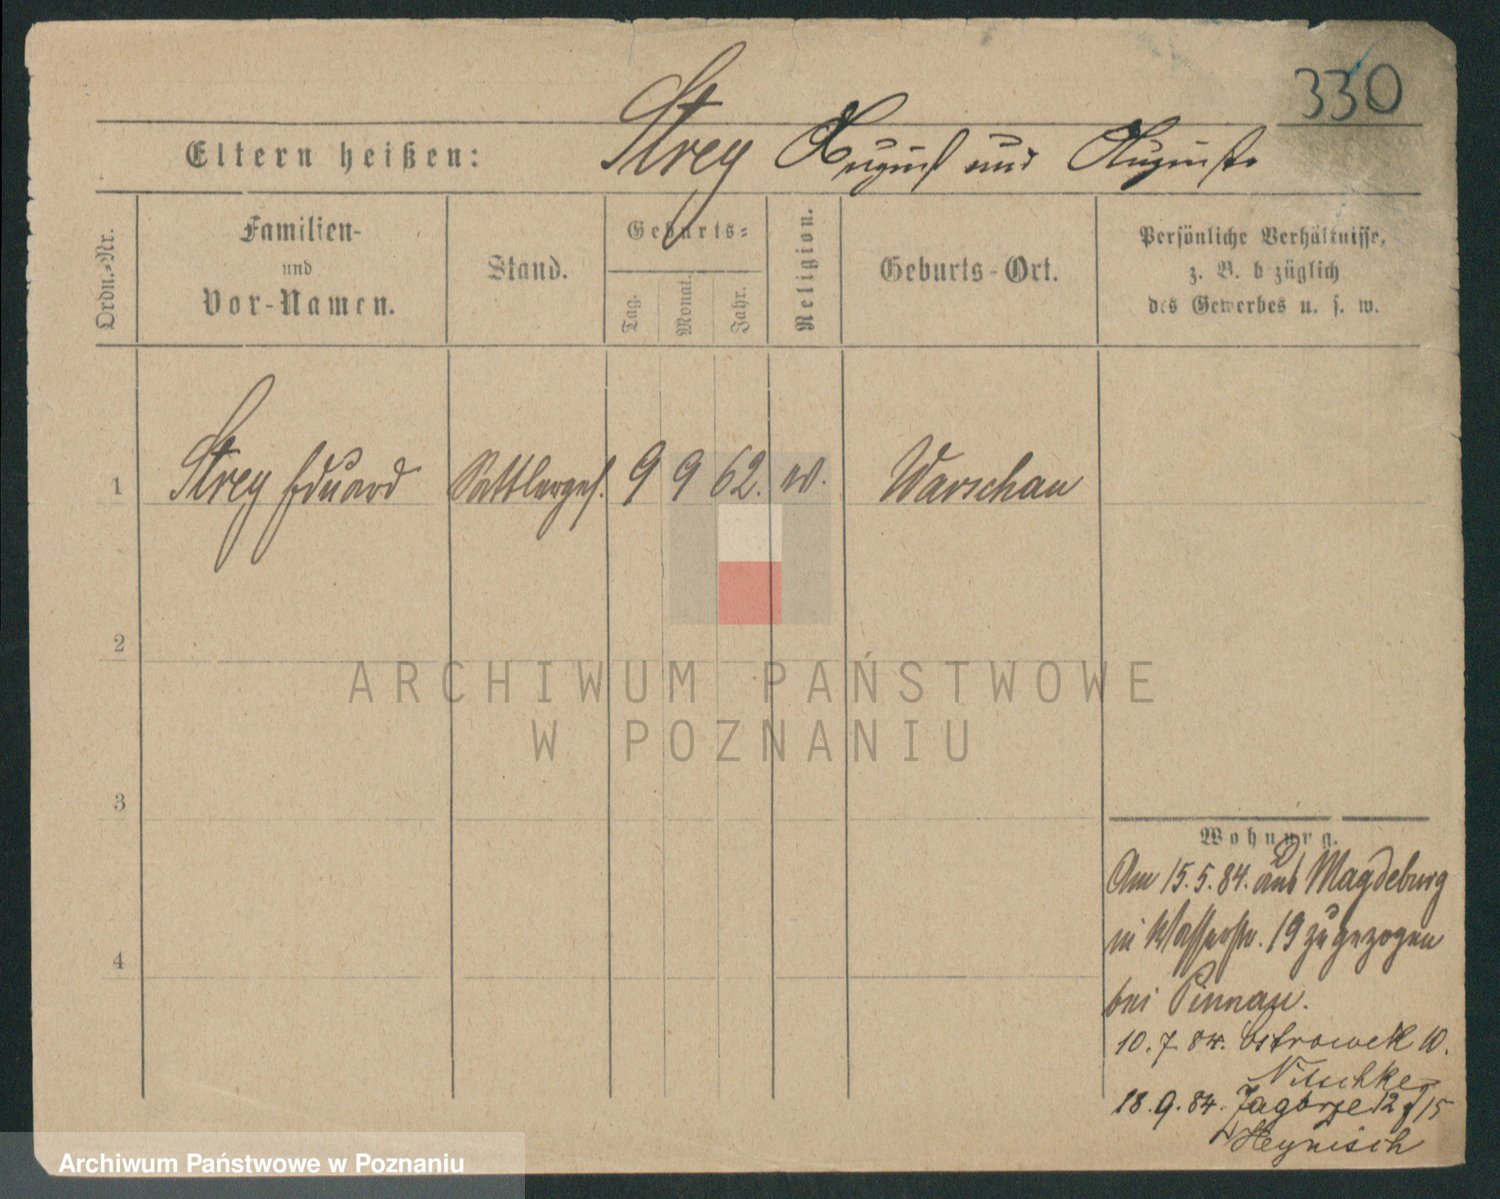 330
Eltern heißen: Strey August und Auguste
Ordn.-Nr.
Familien-
und
Vor-Namen.
Stand.
Geburts-
Tag.
Monat.
Jahr.
Religion.
Geburts-Ort.
Persönliche Verhältnisse,
z. B. bezüglich
des Gewerbes u. s. w.
1 Strey Eduard Sattlerges. 9 9 62. Warschau
2
3
4
Wohnung.
Am 15.5.84. aus Magdeburg
in Wasserstr. 19 zugezogen
bei Pinnau.
10.7.84. Ostrowek 10.
Nitschke
18.9.84. Zagorze 12/15
Heynisch
ARCHIWUM PAŃSTWOWE
W POZNANIU
Archiwum Państwowe w Poznaniu